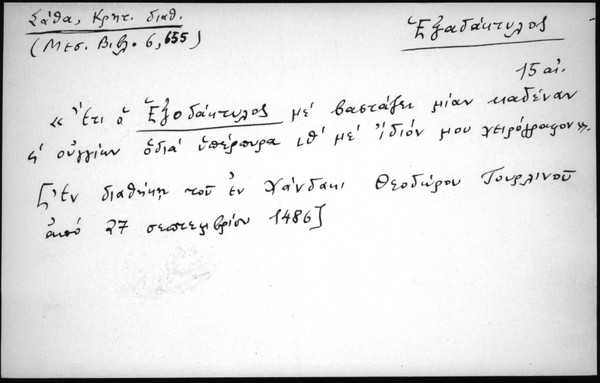 Σάθα, Κρητ. διαθ.
(Μεσ. Βιβλ. 6, 655)
Ἑξαδάκτυλος
15 αἰ.
« Ἔτι ὁ Ἑξοδάκτυλος μέ βαστάζει μίαν καδέναν
ς' οὐγγίων ὁδιά ὑπέρπυρα ιθ' μέ ἰδιόν μου χειρόγραφον».
[Ἐν διαθήκῃ τοῦ ἐν Χάνδακι Θεοδώρου Τουρλινοῦ
ἀπό 27 σεπτεμβρίου 1486]